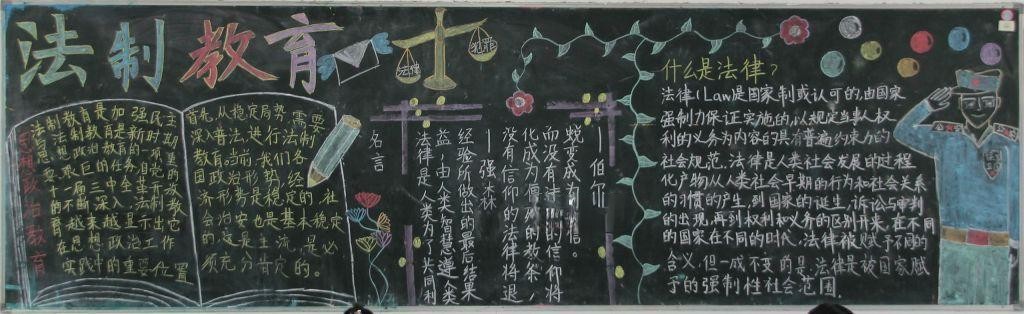 法制教育
法律
犯罪
思想政治教育
法制教育是加强民主
法制教育是新时期
思想政治教育的一项重
要艰巨的任务,自党的
十一届三中全会改
的不断深入,法制教
育越来越显示出它
在思想政治工作
实践中的重要位置
首先,从稳定局势,需要
深入普法,进行法制
教育。当前,我们各
国政治形势,经
济形势是稳定的,社
会治安也是基本稳定
的,这是主流,是必
须充分肯定的。
名言
法律是人类为了共同利
益,由人类智慧遵人类
经验所做出的最后结果
——强森
没有信仰的法律将退
化成为僵死的教条,
而没有法律的信仰将
蜕变成为信。
——伯尔
什么是法律?
法律(Law是国家制或认可的,由国家
强制力保证实施的,以规定当事人权
利的义务为内容的具有普遍约束力的
社会规范.法律是人类社会发展的过程
化产物从人类社会早期的行为和社会关系
的习惯的产生,到国家的诞生,诉讼与审判
的出现,再到权利和义务的区别开来,在不同
的国家在不同的时代,法律被赋予不同的
含义,但一成不变的是,法律是被国家赋
予的强制性社会范围.